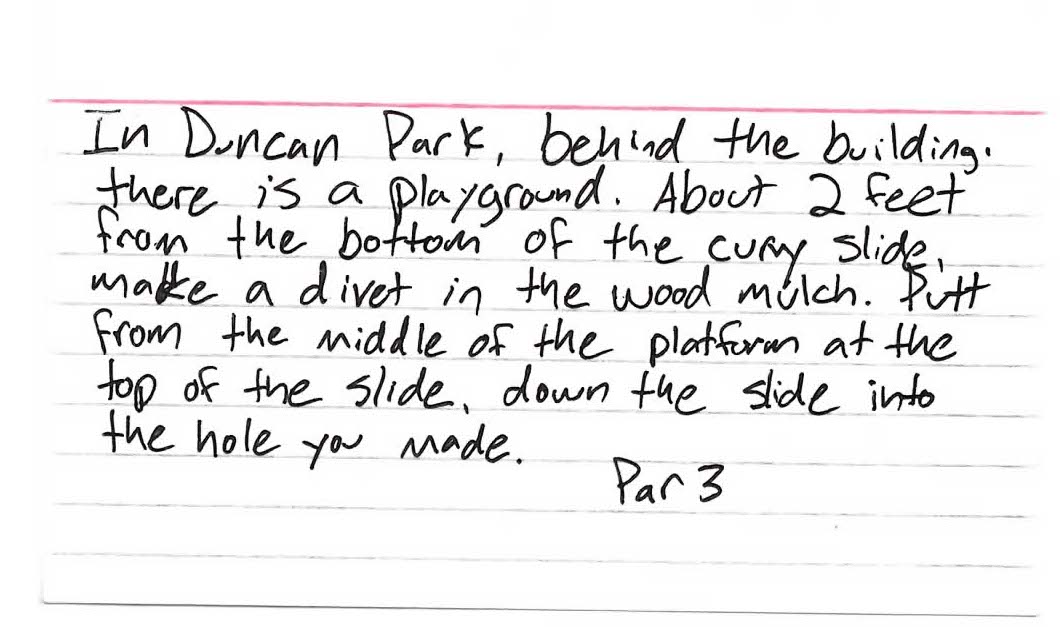 In Duncan Park, behind the building.
there is a playground. About 2 feet
from the bottom of the curvy slide,
make a divet in the wood mulch. Putt
from the middle of the platform at the
top of the slide, down the slide into
the hole you made.
Par 3